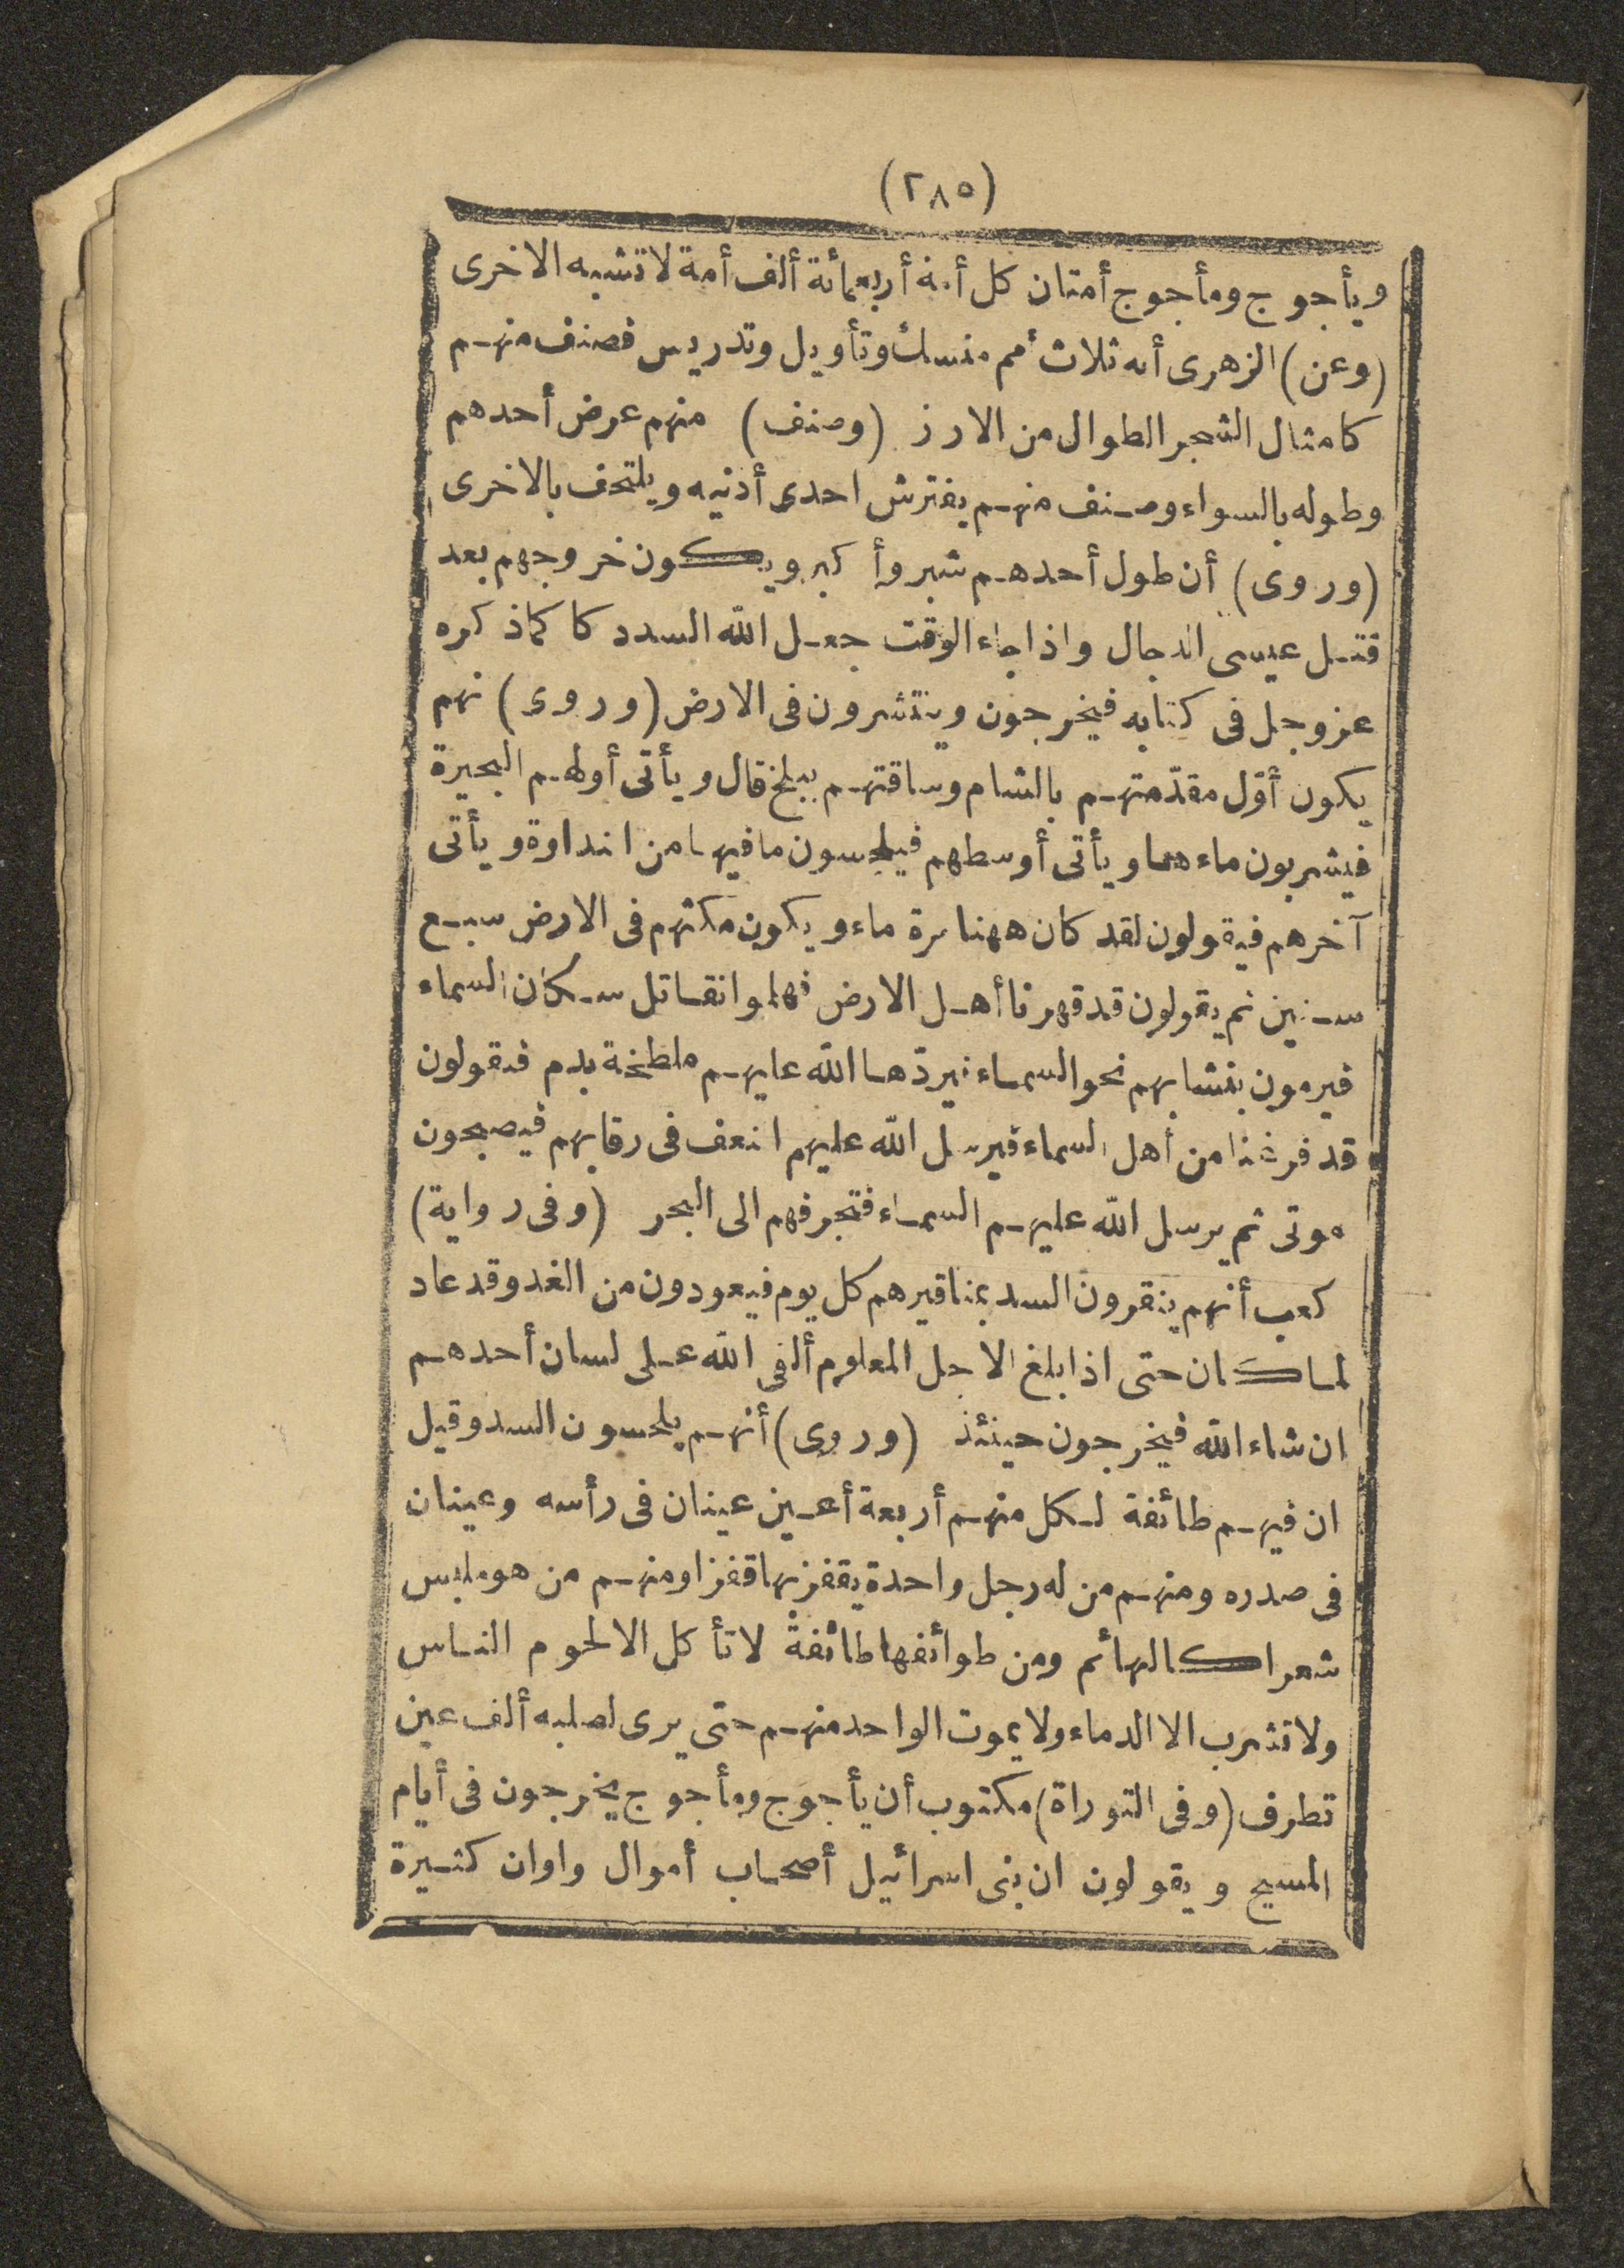 (٢٨٥)
ويأجوج ومأجوج أمتان كل أمة أربعمائة ألف أمة لا تشبه الاخرى
(وعن) الزهرى أنه ثلاث أمم منسك وتأويل وتدريس فصنف منهم
كامثال الشجر الطوال من الارز (وصنف) منهم عرض أحدهم
وطوله بالسواء وصنف منهم يفترش احدى أذنيه ويلتحف بالاخرى
(وروى) أن طول أحدهم شبر وأكبر ويكون خروجهم بعد
قتل عيسى الدجال واذا جاء الوقت جعل الله السد دكا كما ذكره
عز وجل فى كتابه فيخرجون وينتشرون فى الارض (وروى) نهم
يكون أوّل مقدّمتهم بالشام وساقتهم ببلخ قال ويأتى أولهم البحيرة
فيشربون ماءها ويأتى أوسطهم فيلحسون ما فيها من النداوة ويأتى
آخرهم فيقولون لقد كان ههنا مرة ماء ويكون مكثهم فى الارض سبع
سنين ثم يقولون قد قهرنا أهل الارض فهلموا نقاتل سكان السماء
فيرمون بنشابهم نحو السماء فيردّها الله عليهم ملطخة بدم فيقولون
قد فرغنا من أهل السماء فيرسل الله عليهم النغف فى رقابهم فيصبحون
موتى ثم يرسل الله عليهم السماء فتجرفهم الى البحر (وفى رواية)
كعب أنهم ينقرون السد بمناقيرهم كل يوم فيعودون من الغد وقد عاد
لما كان حتى اذا بلغ الاجل المعلوم ألقى الله على لسان أحدهم
ان شاء الله فيخرجون حينئذ (وروى) أنهم يلحسون السد وقيل
ان فيهم طائفة لكل منهم أربعة أعين عينان فى رأسه وعينان
فى صدره ومنهم من له رجل واحدة يقفز بها قفزا ومنهم من هو ملبس
شعرا كالبهائم ومن طوائفها طائفة لا تأكل الا لحوم الناس
ولا تشرب الا الدماء ولا يموت الواحد منهم حتى يرى لصلبه ألف عين
تطرف (وفى التوراة) مكتوب أن يأجوج ومأجوج يخرجون فى أيام
المسيح ويقولون ان بنى اسرائيل أصحاب أموال واوان كثيرة